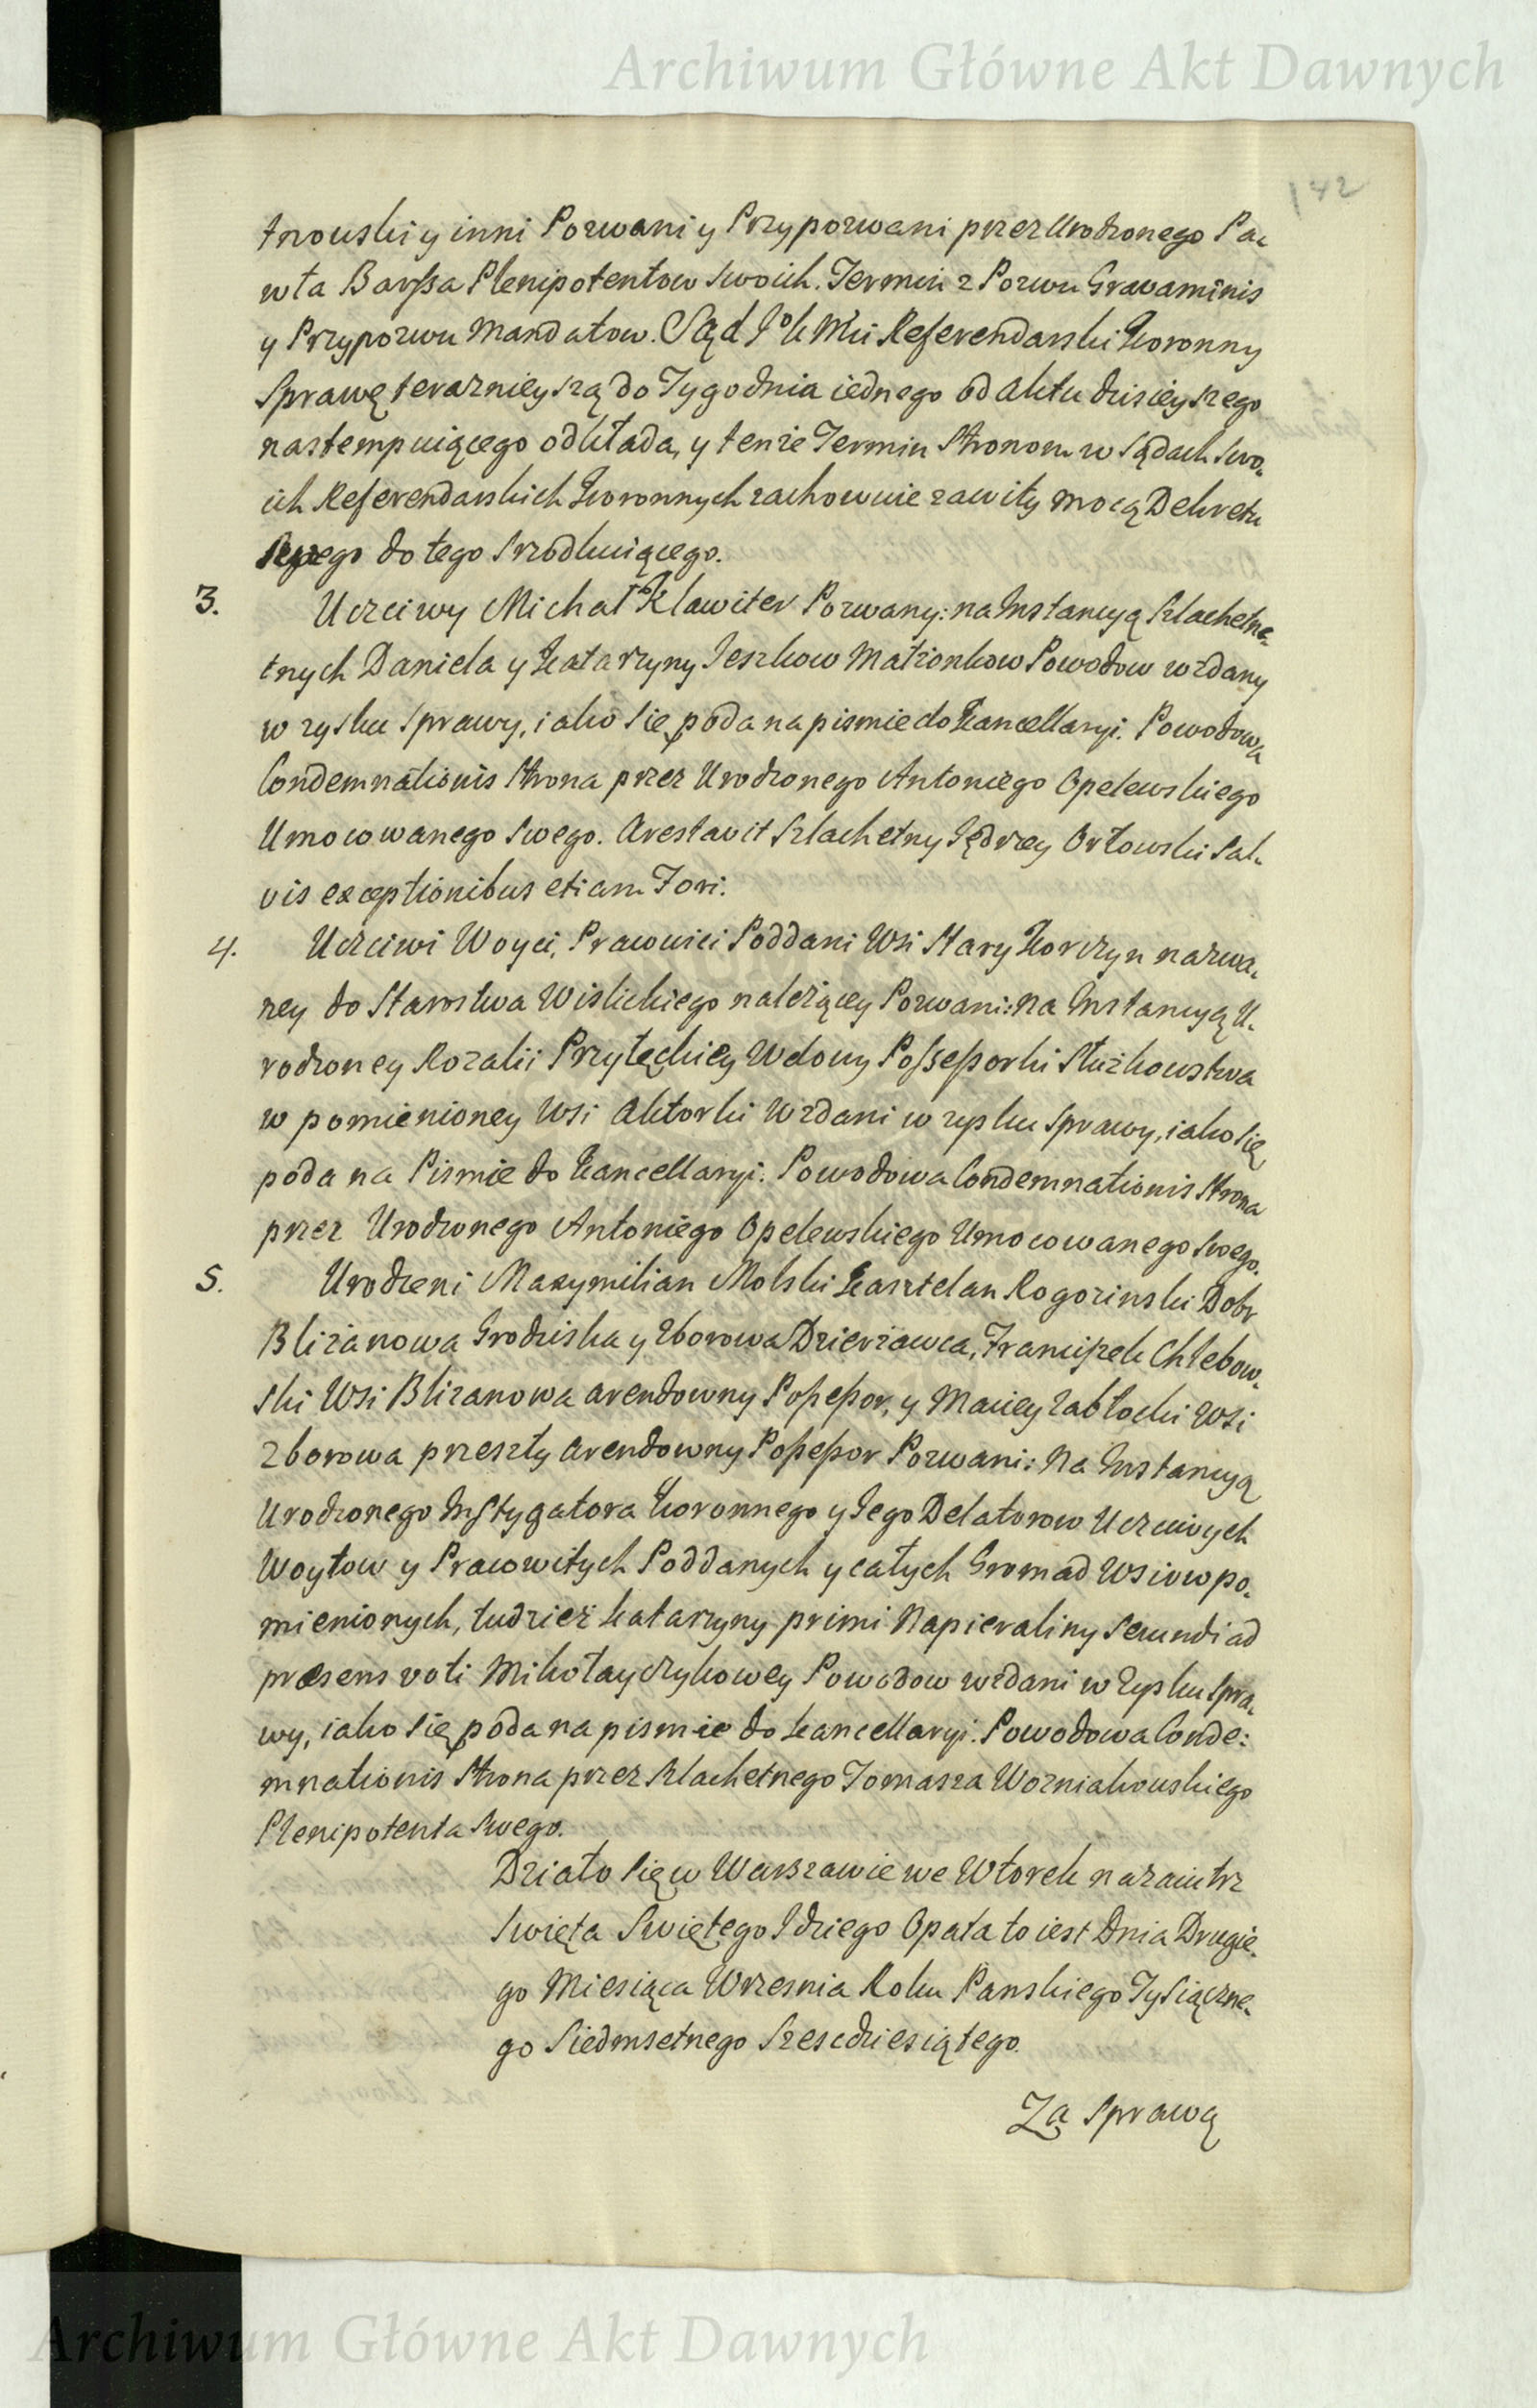 Archiwum Główne Akt Dawnych
142
trowski y inni Pozwani y Przypozwani przez Urodzonego Pa-
wła Barssa Plenipotentow swoich. Termin z Pozwu Gravaminis
y Przypozwu Mandatow. Sąd JoK Mci Referendarski Koronny
Sprawę terazniejszą do Tygodnia iednego od aktu dzisieyszego
nastempuiącego odkłada, y tenże Termin Stronom w Sądach swo-
ich Referendarskich Koronnych zachowuie zawity mocą Dekretu
swego do tego srzodkuiącego.
3. Uczciwy Michał Klawiter Pozwany: na Instancyą Szlachetne-
tnych Daniela y Katarzyny Jeszkow Małżonkow Powodow wzdany
w zysku sprawy, iako się poda na pismie do Kancellaryi. Powodowa
Condemnationis strona przez Urodzonego Antoniego Opelewskiego
Umocowanego swego. Arestavit Szlachetny Jędrzey Orłowski Sal-
vis exceptionibus etiam Fori.
4. Uczciwi Woyci, Pracowici Poddani Wsi Stary Korczyn nazwa-
ney do Starostwa Wislickiego należącey Pozwani: Na Instancyą U-
rodzoney Rozalii Przyłęckiey Wdowy Possessorki Służkowstwa
w pomienioney Wsi Aktorki Wzdani w zysku sprawy, iako się
poda na Pismie do Kancellaryi. Powodowa Condemnationis strona
przez Urodzonego Antoniego Opelewskiego Umocowanego swego.
5. Urodzeni Maxymilian Molski Kasztelan Rogozinski Dobr
Bliżanowa Grodziska y Zborowa Dzierżawca, Franciszek Chlebow-
ski Wsi Blizanowa arendowny Possessor, y Maciey Zabłocki Wsi
Zborowa przeszły arendowny Possessor Pozwani: Na Instancyą
Urodzonego Instygatora Koronnego y Jego Delatorow Uczciwych
Woytow y Pracowitych Poddanych y całych Gromad Wsiow po-
mienionych, tudzież Katarzyny primi Napieraliny secundi ad
præsens voti Mikołayczykowey Powodow wzdani w Zysku spra-
wy, iako się poda na pismie do Kancellaryi. Powodowa Conde:
mnationis strona przez Szlachetnego Tomasza Wozniakowskiego
Plenipotenta swego.
Działo się w Warszawie we Wtorek nazaiutrz
Swięta Swiętego Idziego Opata to iest Dnia Drugie-
go Miesiąca Wrzesnia Roku Panskiego Tysiączne-
go Siedmsetnego Szescdziesiątego.
Za sprawą
Archiwum Główne Akt Dawnych